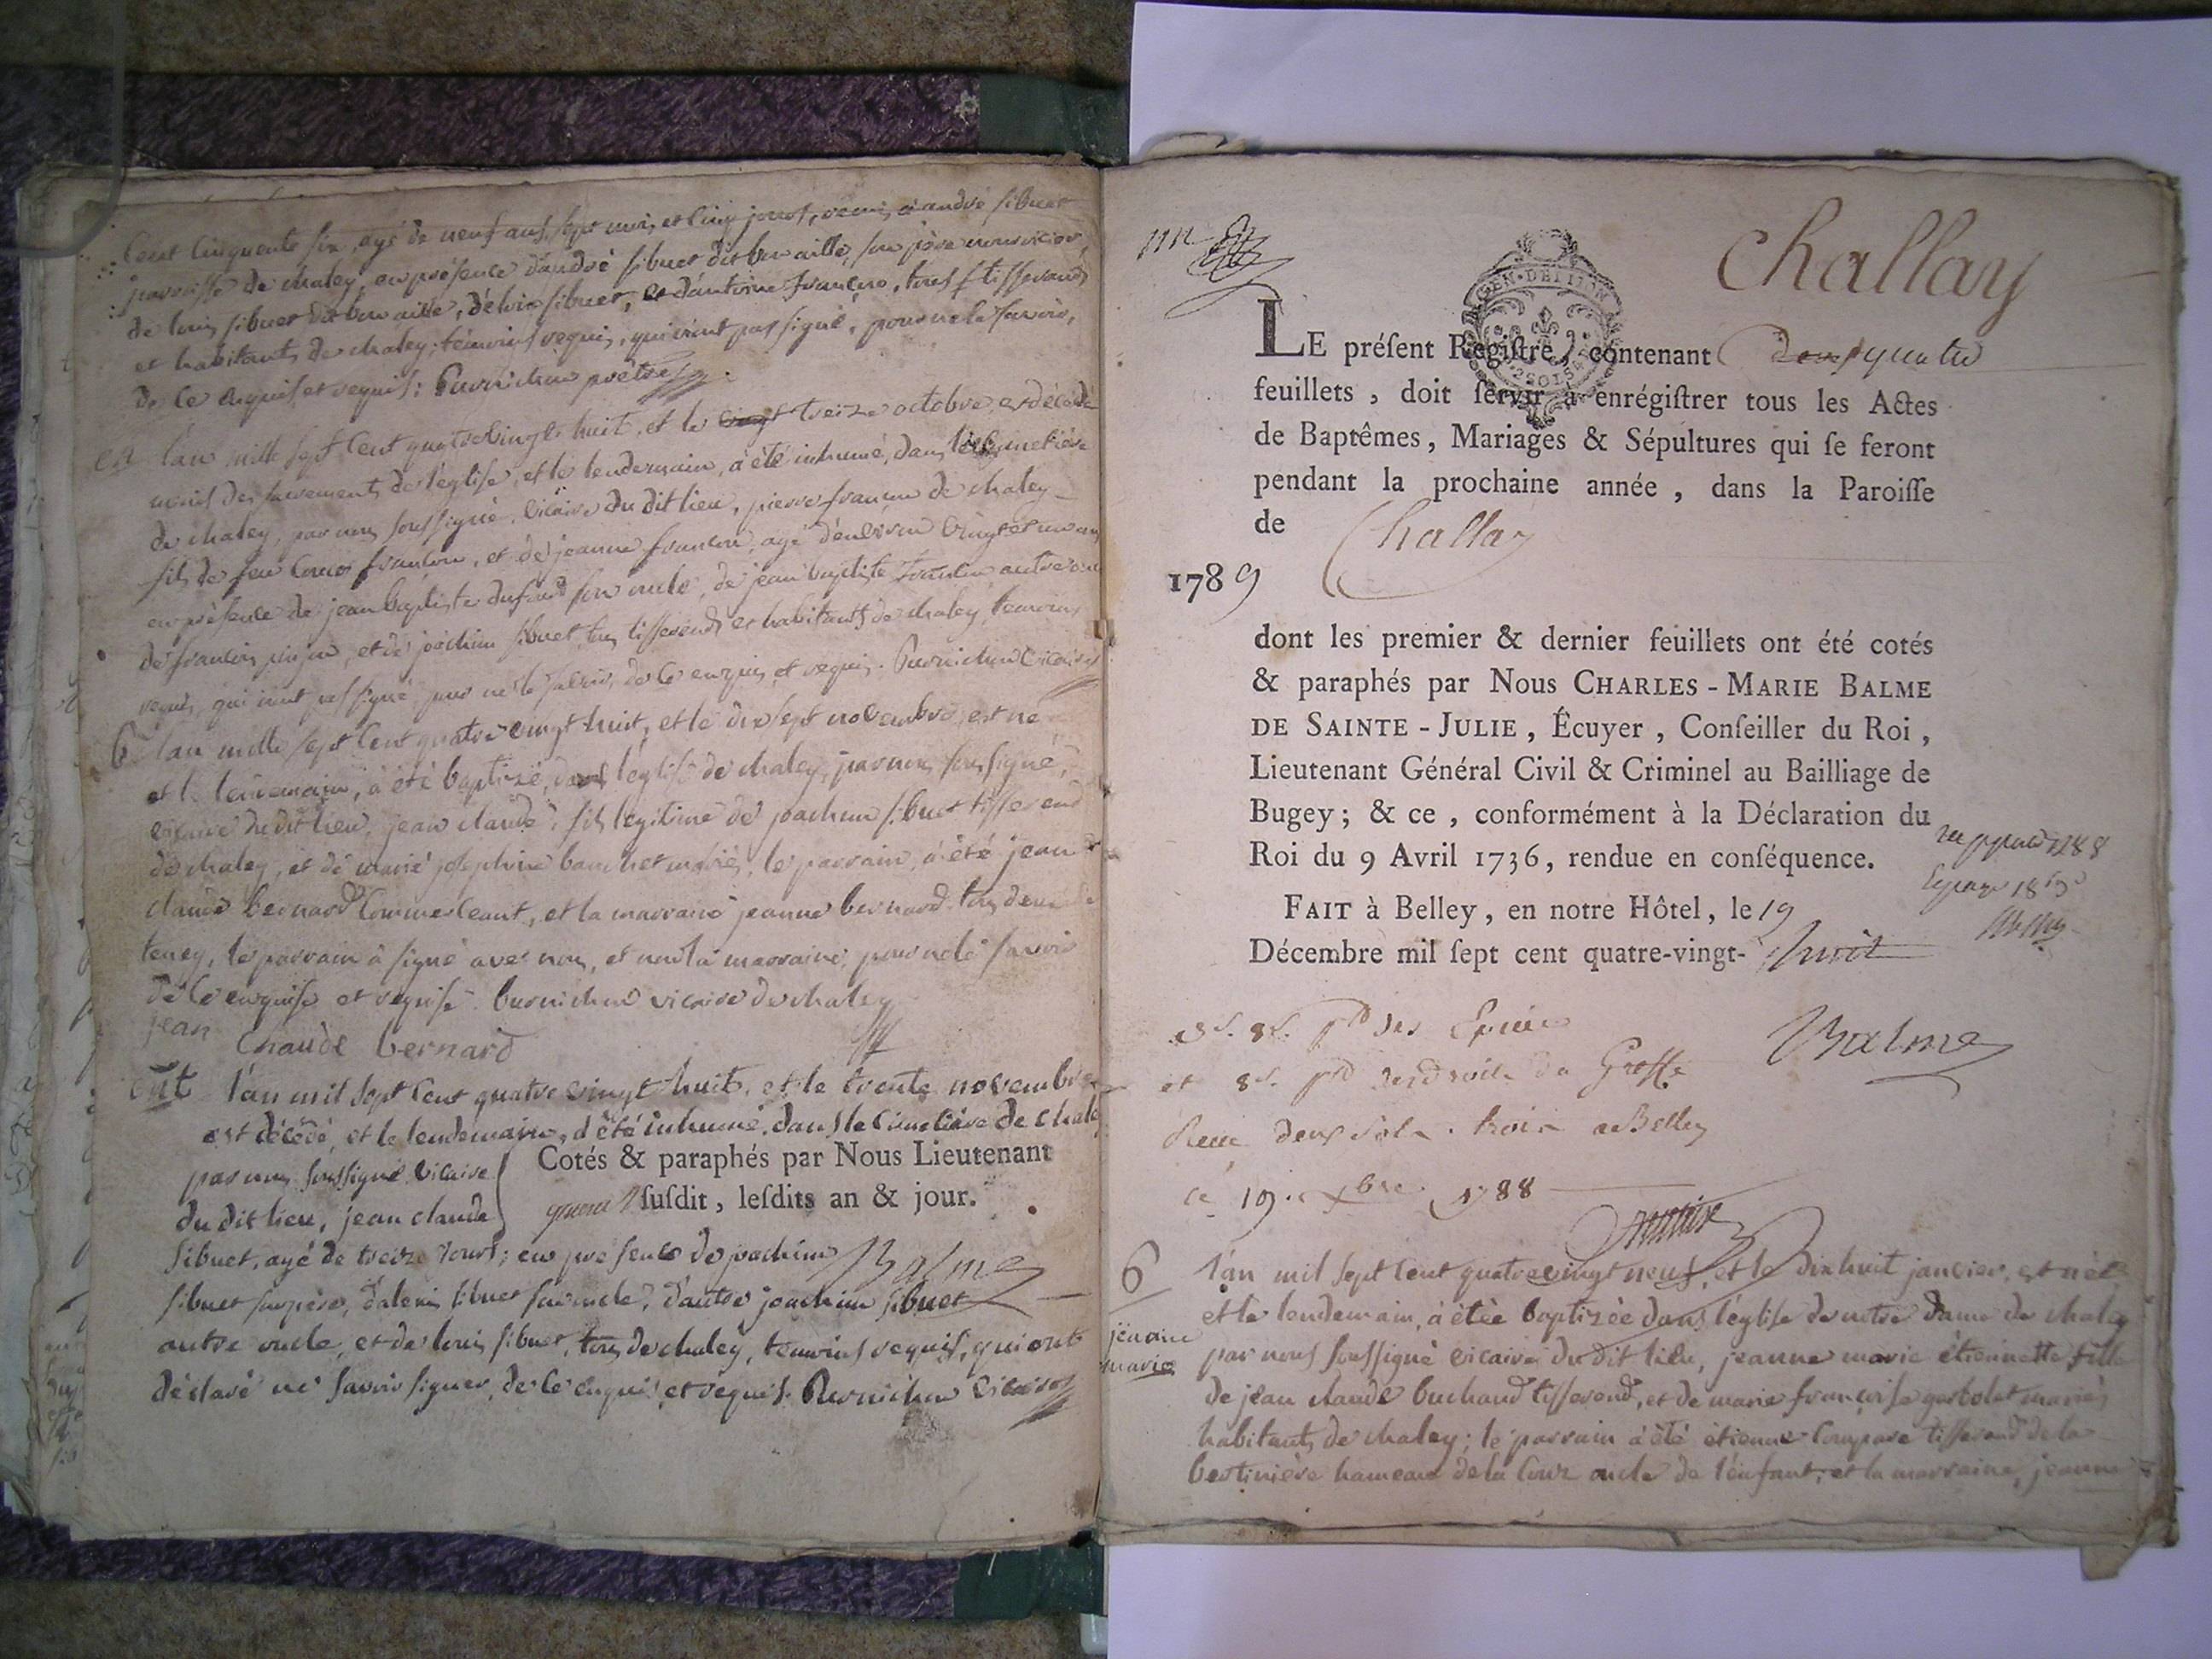 Cent Cinquante six, agé de neuf ans, sept mois et cinq jours, remis à andré sibuet
paroisse de chaley, en présence d'andré sibuet dit bon aille, son père nourricier,
de louis sibuet dit bon aille, sibuet, et d'antoine françon, tous tisserands
et habitants de chaley, témoins requis, qui n'ont pas signé, pour ne le savoir,
de ce enquis et requis: Burnichon prêtre
l'an mille sept Cent quatre vingt huit, et le treize octobre, est décédé
muni des sacrements de l'église, et le lendemain, a été inhumé, dans le cymetière
de chaley, par nous soussigné, vicaire du dit lieu, pierre françon de chaley
fils de feu françon, et de jeanne françon, agé d'environ vingt et un ans
en présence de jean baptiste dufour son oncle, de jean baptiste françon autre
de françois, et de joachim sibuet, tous tisserends et habitants de chaley, temoins
requis, qui n'ont pas signé pour ne le savoir, de ce enquis et requis. Burnichon vicaire
6 l'an mille sept Cent quatre vingt huit, et le dix sept novembre, est né
et le lendemain, à été baptizé, dans l'église de chaley, par nous soussigné,
vicaire du dit lieu, jean claude, fils légitime de joachim sibuet tisserend
de chaley, et de marie josephine mariés, le parrain, à été jean
claude Bernard Commerceant, et la marraine jeanne bernard, tous deux de
tenay, le parrain à signé avec nous, et non la marraine, pour ne le savoir
de ce enquise et requise. burnichon vicaire de chaley
jean Claude bernard
ent l'an mil sept Cent quatre vingt huit, et le trente novembre
est décédé, et le lendemain, a été inhumé, dans le Cimetière de chaley
par nous soussigné vicaire
du dit lieu, jean claude
Cotés & paraphés par Nous Lieutenant
ſuſdit, leſdits an & jour.
sibuet, agé de treize jours; en presence de joachim Balme
sibuet son père, d'alexis sibuet son oncle, d'autre joachim sibuet
autre oncle, et de louis sibuet, tous de chaley, témoins requis, qui ont
déclaré ne savoir signer, de ce enquis et requis. Burnichon vicaire
Challay
GEN. DE DIJON
2 SOLS 4
LE préſent Regiſtre, contenant quatre
feuillets, doit ſervir à enrégiſtrer tous les Actes
de Baptêmes, Mariages & Sépultures qui ſe feront
pendant la prochaine année, dans la Paroiſſe
de Challay
1789
dont les premier & dernier feuillets ont été cotés
& paraphés par Nous CHARLES-MARIE BALME
DE SAINTE-JULIE, Écuyer, Conſeiller du Roi,
Lieutenant Général Civil & Criminel au Bailliage de
Bugey; & ce, conformément à la Déclaration du
Roi du 9 Avril 1736, rendue en conſéquence.
FAIT à Belley, en notre Hôtel, le 19
Décembre mil ſept cent quatre-vingt-huit
Balme
et des droits du Greffe
Receu deux sols trois a Belley
ce 19 xbre 1788
6 l'an mil sept Cent quatre vingt neuf, et le dix huit janvier, est née
et le lendemain, à étée baptizée dans l'église de notre dame de chaley
jeanne
marie
par nous soussigné vicaire du dit lieu, jeanne marie étiennette fille
de jean claude buchand tisserend, et de marie françoise mariés
habitants de chaley; le parrain à été étienne Compare tisserend de la
bertinière hameau de la Cour oncle de l'enfant, et la marraine, jeanne